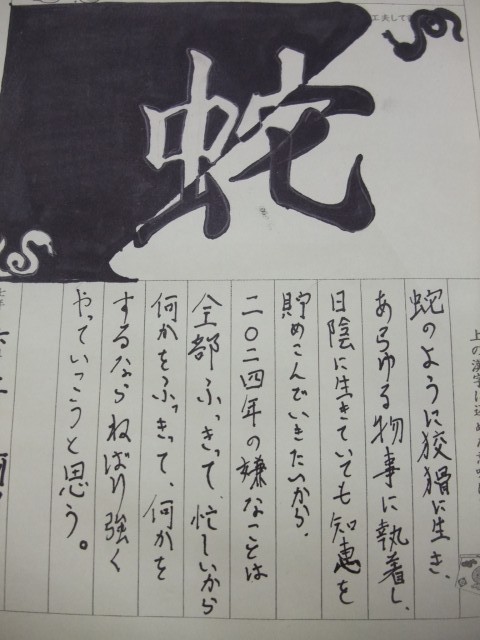 工夫して
蛇
上の漢字に込めた
蛇のように狡猾に生き、
あらゆる物事に執着し、
日陰に生きていても知恵を
貯めこんでいきたいから、
二〇二四年の嫌なことは
全部ふっきって、忙しいから
何かをふっきって、何かを
するならねばり強く
やっていっこうと思う。